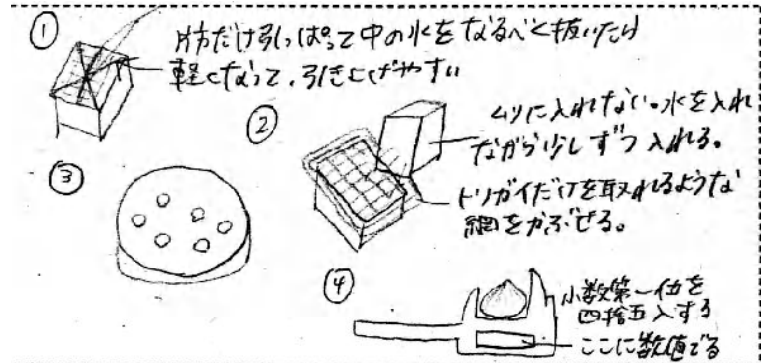 ①
片方だけ引っぱって中の水をなるべく抜いたら
軽くなって、引き上げやすい
②
ムリに入れない。水を入れ
ながら少しずつ入れる。
トリガイだけを取れるような
網をかぶせる。
③
④
小数第一位を
四捨五入する
ここに数値でる